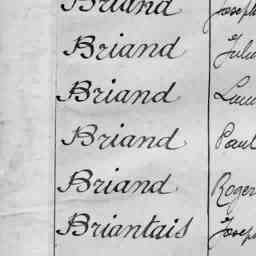 Briand Joseph
Briand Jule
Briand
Briand Paul
Briand Roger
Briantais Joseph